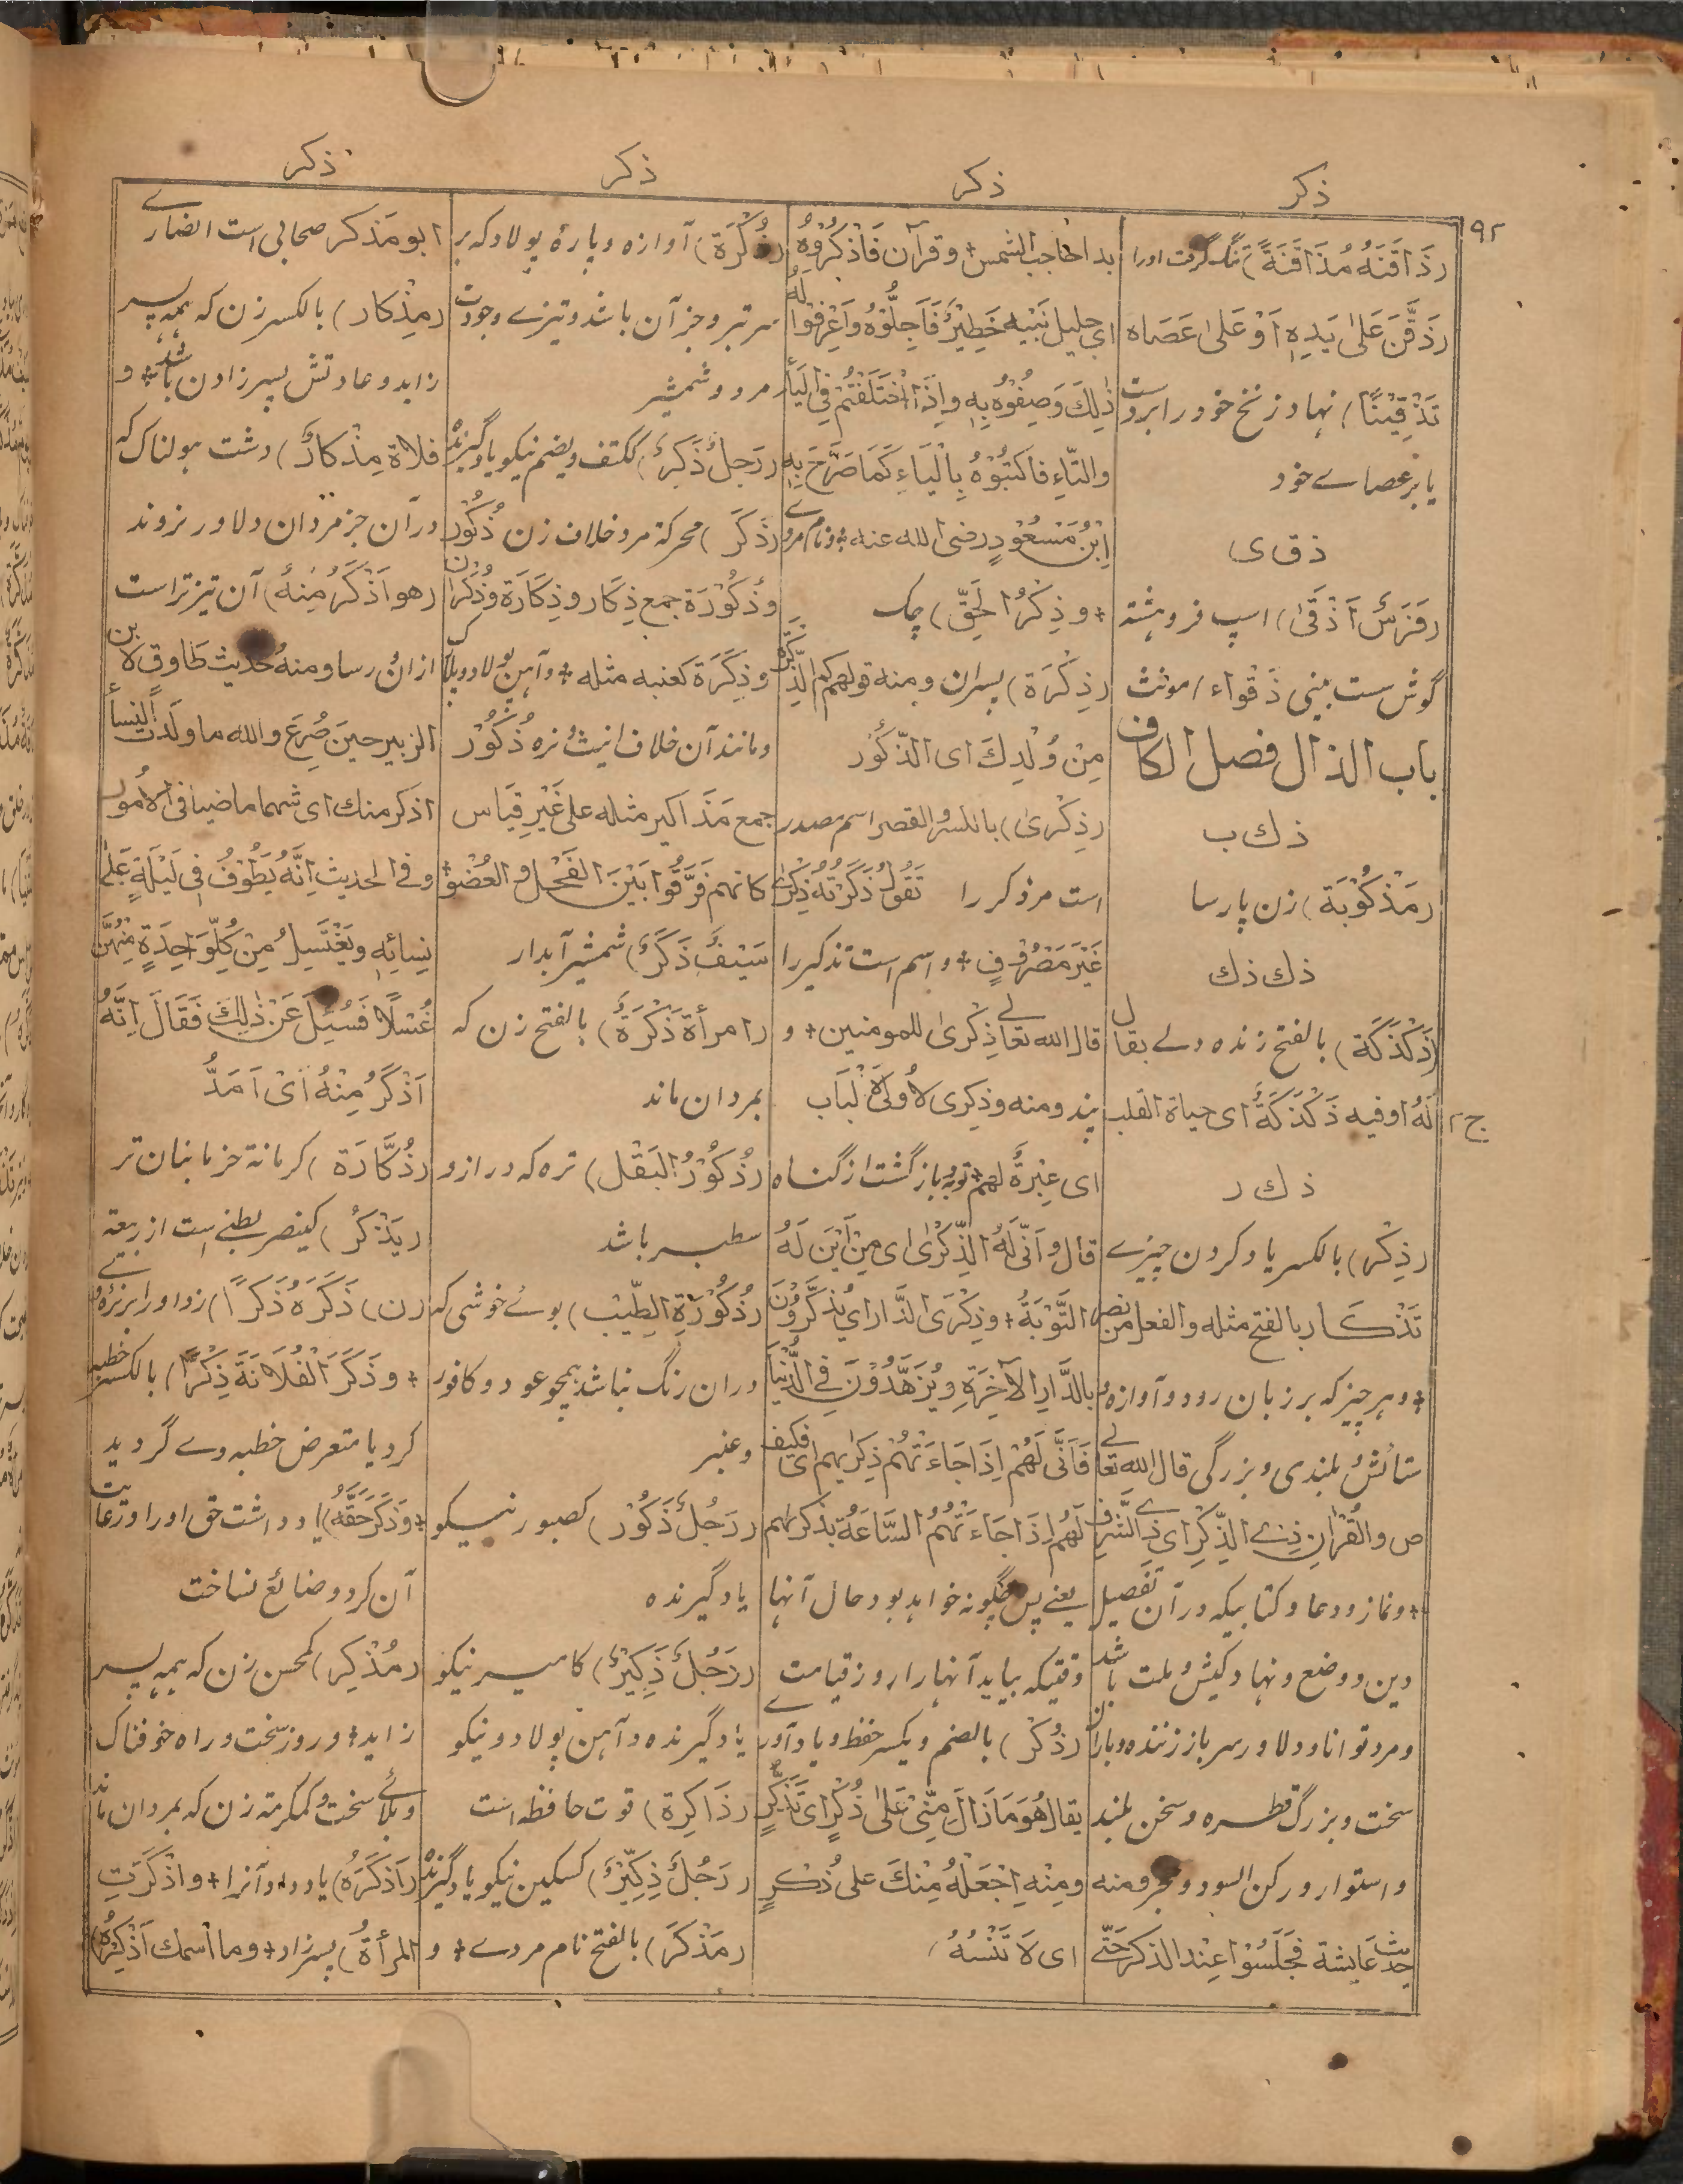 ذكر
ذكر
ذكر
ذكر
۱۹۲
(ذَاقَنَهُ مُذَاقَنَةً) تنگ گرفت اورا
(ذَقَّنَ عَلىٰ يَدِهٖ اَوْ عَلىٰ عَصَاه
تَذْقِيْنًا) نهاد زنخ خود را بردست
يا بر عصاے خود
ذ ق ى
(فَرَسٌ اَذْقىٰ) اسپ فروهشته
گوش ست بينى ذَقْواء مونث
باب الذال فصل الكاف
ذ ك ب
(مَذْكُوْبَة) زن پارسا
ذ ك ذ ك
(ذَكْذَكَة) بالفتح زنده دلے يقال
لَهُ او فيه ذَكْذَكَةٌ اى حياة القلب
ج ۲
ذ ك ر
(ذِكْر) بالكسر ياد كردن چيزے
تَذْكَار بالفتح مثله والفعل من نصر
+ و هر چيز كه بر زبان رود و آوازه و
ستائش و بلندى و بزرگى قال الله تعالے
ص والقُرْاٰنِ ذِے الذِّكْرِ اى ذے الشَّرف
+ و نماز و دعا و كتابيكه در آن تفصيل
دين و وضع و نهاد كيش و ملت باشد
و مرد توانا و دلاور سر باز زننده و باران
سخت و بزرگ قطره و سخن بلند
و استوار و ركن السود و حجر و منه
حديث عَايشة فجَلَسُوْا عِنْد الذكر حَتّے
بدا حاجب الشمس + و قرآن فَاذْكُرُوْهُ
اى جليل نَبِيْه خَطِيْرٌ فَاَجِلُّوْهُ وَاعْرِفُوْا لَهُ
ذٰلِكَ وَصِفُوْهُ بِهٖ وَاِذَا اخْتَلَفْتُمْ فِى الْيَاءِ
والتّاءِ فاكتبُوْهُ بِالْيَاءِ كَمَا صَرَّحَ بِهٖ
اِبْنُ مَسْعُوْدٍ رضى الله عنه + و نام مردے
+ و ذِكْرُ الحَقّ) چك
(ذِكْرَة) پسران و منه قولهم كم الذِّكْرَة
مِنْ وُلْدِكَ اى الذّكُوْر
(ذِكْرىٰ) بالكسر والقصر اسم مصدر
است مر ذكر را تَقُوْلُ ذَكَرْتُهُ ذِكْرٰى
غَيْرَ مَصْرُوْفٍ + و اسم است تذكير را
قال الله تعالے ذِكْرىٰ للمومنين + و
پند و منه وذِكرى لاُولى الْاَلْبَاب
اى عِبْرةٌ لهم + توبه و بازگشت از گناه
قال وَاَنّٰى لَهُ الذِّكْرٰى اى مِنْ اَيْنَ لَهُ
التَّوْبَةُ + وذِكْرَى الدَّار اى يُذَكَّرُوْنَ
بِالدَّارِ الآخِرَةِ ويُزَهَّدُوْنَ فے الدُّنْيَا
فَاَنّٰى لَهُمْ اِذَا جَاءَتْهُمْ ذِكْرٰيهم اى فكيف
لَهُم اِذَا جَاءَتْهُمُ السَّاعَةُ بِذكرٰهم
يعنے پس چگونه خواهد بود حال آنها
وقتيكه بيايد آنهارا روز قيامت
(ذُكْر) بالضم و يكسر حفظ و ياد آورى
يقال هُوَ مَا زَالَ مِنّى عَلىٰ ذُكْرٍ اى تَذَكُّرٍ
ومِنْهِ اجْعَلْهُ مِنْكَ على ذُكْرٍ
اى لَا تَنْسَهُ
(ذُكْرَة) آوازه و پارهٔ پولاد كه بر
سر تبر و جز آن باشد و تيزے و جودت
مرد و شمشير
(رَجلٌ ذَكِرٌ) ككتف و يضم نيكو يادگيرنده
(ذَكَر) محركة مرد خلاف زن ذُكُوْر
وذُكُوْرَة جمع ذِكَار وذِكَارَة وذُكْرَان
وذِكَرَة كعنبه مثله + و آهن پولاد و بلارك
و مانند آن خلاف انيث و نره ذُكُوْر
جمع مَذَاكير مثله على غَيْرِ قِيَاس
كانهم فَرَّقُوا بَيْنَ الفَحْلِ و العُضْو +
سَيْفٌ ذَكَرٌ) شمشير آبدار
(امرأة ذَكْرَةٌ) بالفتح زن كه
بمردان ماند
(ذُكُوْرُ البَقْل) تره كه دراز و
سطبر باشد
(ذُكُوْرَةِ الطِّيْب) بوے خوشى كه
دران رنگ نباشد همچو عود و كافور
و عنبر
(رَجُلٌ ذَكُوْر) كصبور نيكو
يادگيرنده
(رَجُلٌ ذَكِيْرٌ) كامير نيكو
يادگيرنده و آهن پولاد و نيكو
(ذَاكِرة) قوت حافظه است
(رَجُلٌ ذِكِّيْرٌ) كسكين نيكو يادگيرنده
(مَذْكَر) بالفتح نام مردے + و
ابو مَذكر صحابى است انصارے
(مِذْكار) بالكسر زن كه همه پسر
زايد و عادتش پسر زادن باشد + و
فلاة مِذْكارٌ) دشت هولناك كه
در آن جز مردان دلاور نروند
(هو اَذْكَرُ مِنْهُ) آن تيزتر است
ازان رسا و منهُ حديث طارق لابن
الزبير حينَ صُرِعَ والله ما ولَدت النِّساءُ
اذكر منك اى شهما ماضيا فى الاُمور
وفے الحديث اِنَّهُ يَطُوْفُ فِى لَيْلَةٍ عَلىٰ
نِسائِهٖ ويَغْتَسِلُ مِنْ كُلِّ وَاحِدَةٍ مِنْهُنَّ
غُسْلًا فَسُئِلَ عَنْ ذٰلِكَ فَقَالَ اِنَّهُ
اَذْكَرُ مِنْهُ اَىْ اَحَدُّ
(ذُكَّارَة) كرمانة خرمابنان نر
(يَذْكُر) كينصر بطنے است از ربيعة
(ن) ذَكَرَهُ ذَكَرًا) زد اورا بر نرهٔ وے
+ و ذَكَرَ الْفُلَانَةَ ذِكْرًا) بالكسر خطبه
كرد يا متعرض خطبه وے گرديد
+ وذَكَرَ حَقَّهُ) ياد داشت حق اورا و رعايت
آن كرد و ضائع نساخت
(مُذْكِر) كمحسن زن كه همه پسر
زايد + و روز سخت و راه خوفناك
و بلائے سخت و كمكرمة زن كه بمردان ماند
(اَذْكَرَهُ) ياد داد آنرا + و اَذْكَرَتِ
المرأةُ) پسر زاد + و ما اسمك اَذْكُرْهُ)